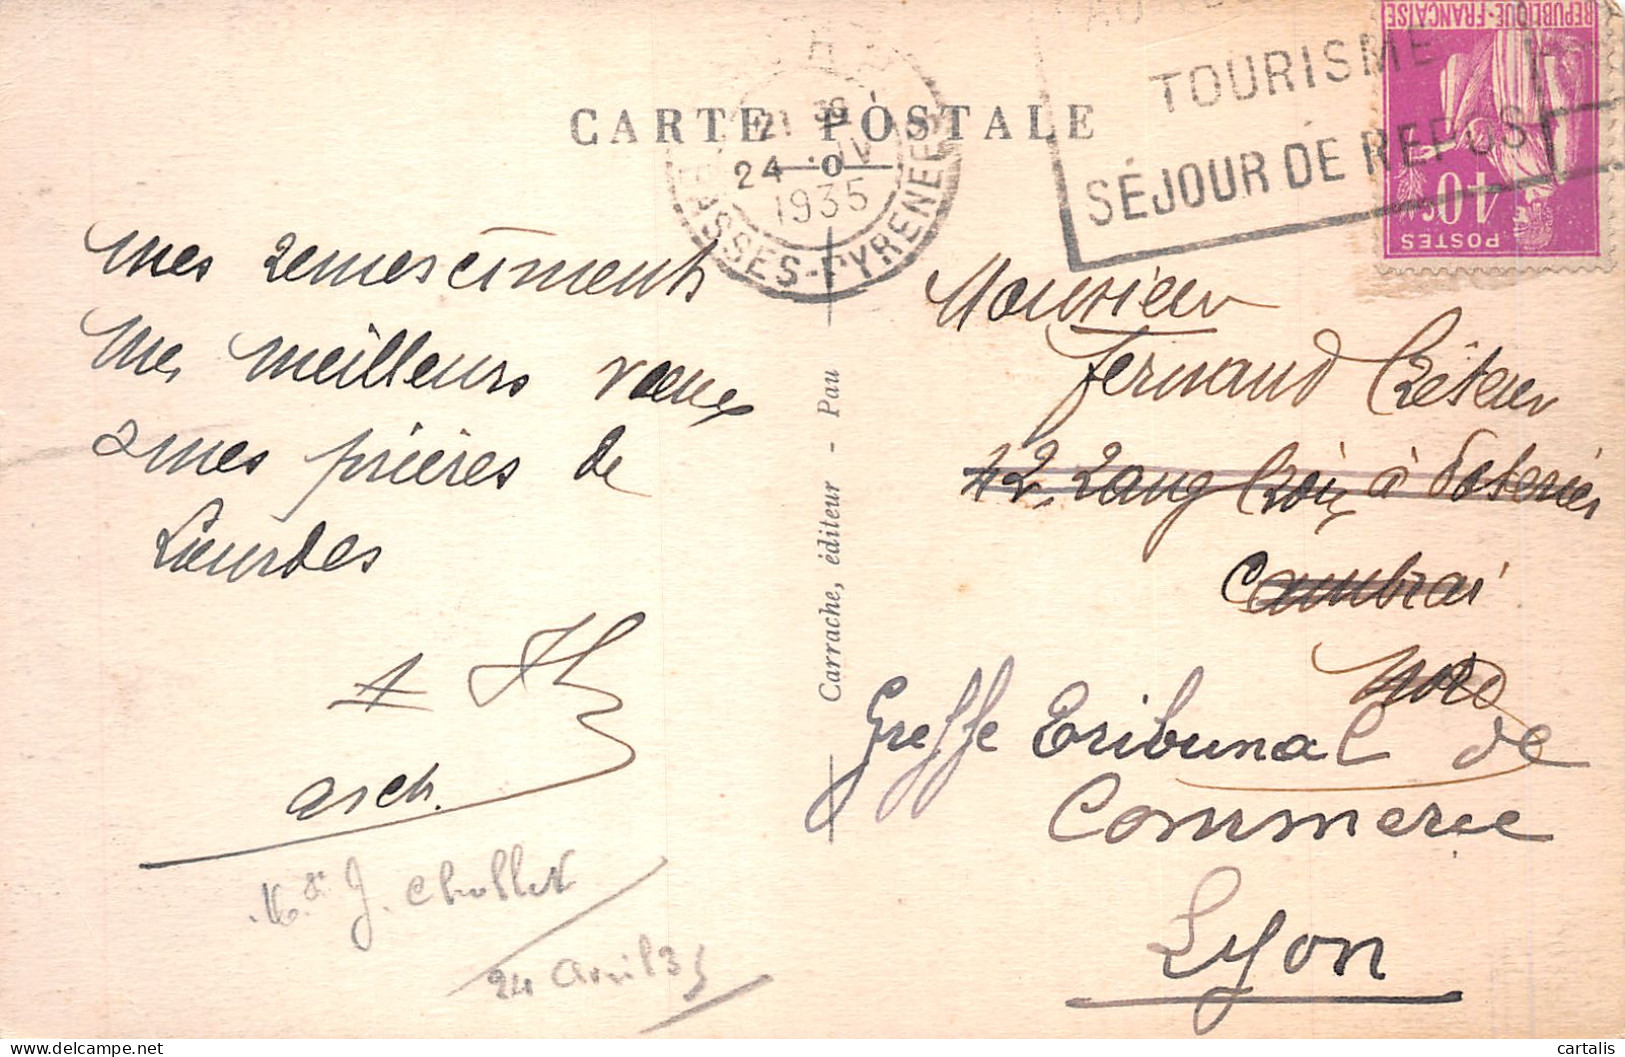 CARTE POSTALE
21 30
24 · IV
1935
BASSES-PYRENEES
TOURISME
SÉJOUR DE REPOS
REPUBLIQUE-FRANÇAISE
40c
POSTES
mes remerciments
Mes meilleurs vœux
& mes prières de
Lourdes
arch.
Mr J. Chollet
24 avril 35
Carrache, éditeur - Pau
Monsieur
Fernand Créteur
42 rang Croix à Poteries
Cambrai
Nord
Greffe Tribunal de
Commerce
Lyon
cartalis